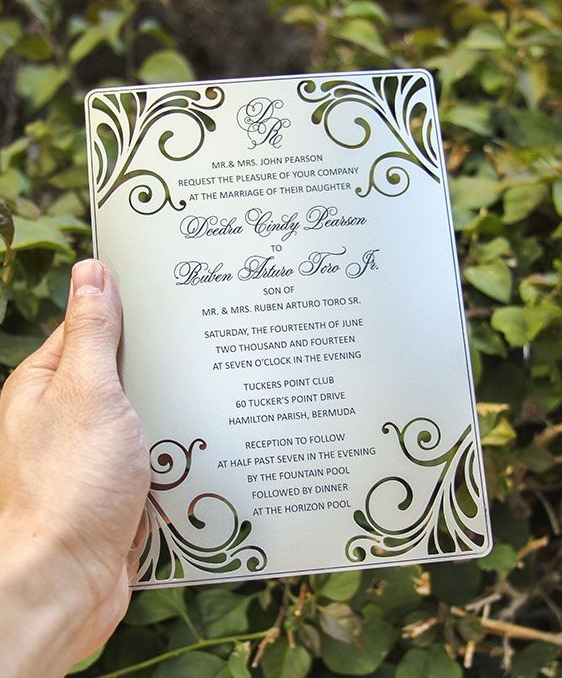 DR
MR.& MRS. JOHN PEARSON
REQUEST THE PLEASURE OF YOUR COMPANY
AT THE MARRIAGE OF THEIR DAUGHTER
Deedra Cindy Pearson
TO
Ruben Arturo Toro Jr.
SON OF
MR. & MRS. RUBEN ARTURO TORO SR.
SATURDAY, THE FOURTEENTH OF JUNE
TWO THOUSAND AND FOURTEEN
AT SEVEN O'CLOCK IN THE EVENING
TUCKERS POINT CLUB
60 TUCKER'S POINT DRIVE
HAMILTON PARISH, BERMUDA
RECEPTION TO FOLLOW
AT HALF PAST SEVEN IN THE EVENING
BY THE FOUNTAIN POOL
FOLLOWED BY DINNER
AT THE HORIZON POOL